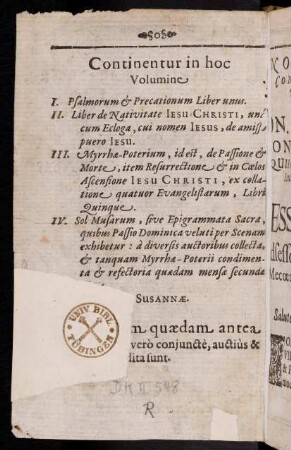 Continentur in hoc
Volumine
I. Psalmorum & Precationum Liber unus.
II. Liber de Nativitate IESU CHRISTI, unà
cum Ecloga, cui nomen IESUS, de amisso
puero IESU.
III. Myrrha-Poterium, id est, de Passione &
Morte, item Resurrectione & in Cœlos
Ascensione IESU CHRISTI, ex colla-
tione quatuor Evangelistarum, Libri
Quinque.
IV. Sol Musarum, sive Epigrammata Sacra,
quibus Passio Dominica veluti per Scenam
exhibetur: à diversis auctoribus collecta,
& tanquam Myrrha-Poterii condimen-
ta & refectoria quædam mensa secunda
SUSANNÆ.
quædam antea
verò conjunctè, auctiùs &
dita sunt.
UNIV. BIBL.
TÜBINGEN
Dk II 548
R